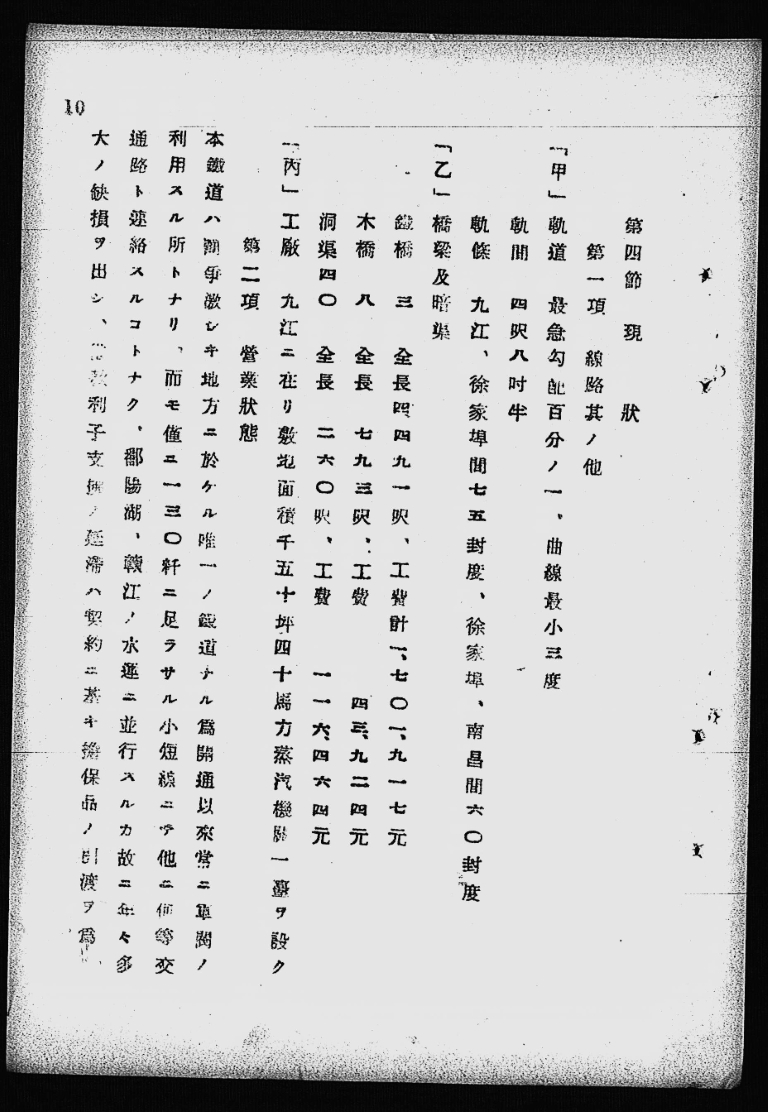 10
第四節 現 狀
第一項 線路其ノ他
「甲」軌道 最急勾配百分ノ一、曲線最小三度
軌間 四呎八吋半
軌條 九江、徐家埠間七五封度、徐家埠、南昌間六〇封度
「乙」橋梁及暗渠
鐵橋 三 全長四、四九一呎、工費計一、七〇一、九一七元
木橋 八 全長 七九三呎、工費 四三、九二四元
洞渠四〇 全長 二六〇呎、工費 一一六、四六四元
「丙」工廠 九江ニ在リ敷地面積千五十坪四十馬力蒸汽機關一臺ヲ設ク
第二項 營業狀態
本鐵道ハ爭激シキ地方ニ於ケル唯一ノ鐵道ナル爲開通以來常ニ軍閥ノ
利用スル所トナリ、而モ僅ニ一三〇粁ニ足ラサル小短線ニテ他ニ何等交
通路ト連絡スルコトナク、鄱陽湖、贛江ノ水運ニ並行スルカ故ニ年々多
大ノ缺損ヲ出シ、利子支拂ノ延滯ハ契約ニ基キ擔保品ノ引渡ヲ爲